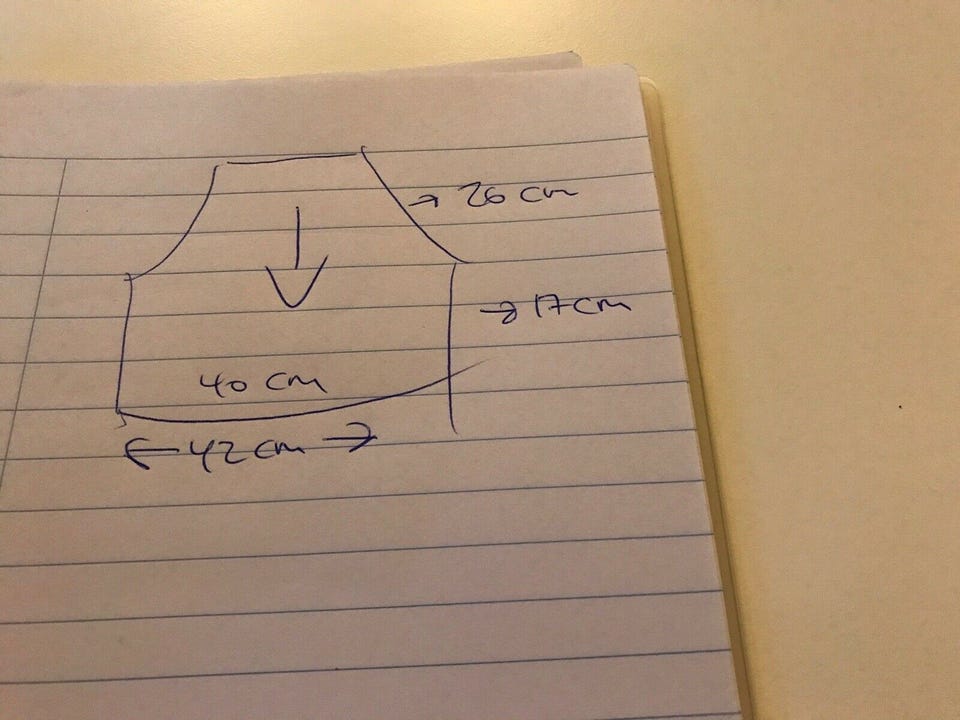 → 26 cm
→ 17 cm
40 cm
← 42 cm →